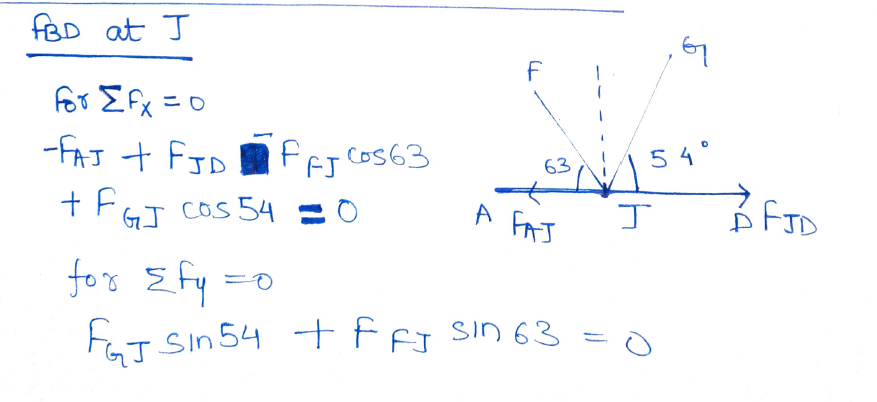 FBD at J
for Σfx = 0
-FAJ + FJD - F FJ cos63
+ F GJ cos 54 = 0
for Σfy = 0
FGJ sin54 + F FJ sin 63 = 0
F
G
63
54°
A
FAJ
J
D
FJD